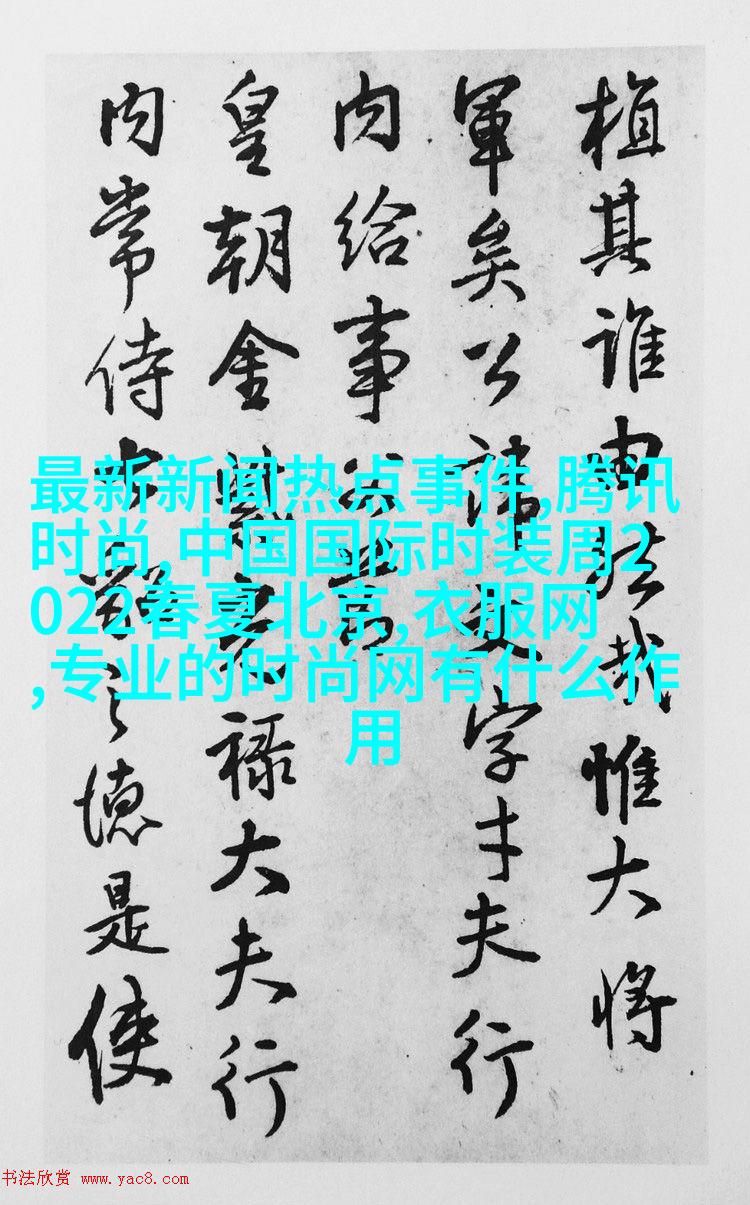 植其誰哉惟大將
軍矣公諱文字才夫行
内給事
皇朝金紫光祿大夫行
内常侍之德是使
最新新闻热点事件,腾讯
时尚,中国国际时装周2
022春夏北京,衣服网
,专业的时尚网有什么作
用
书法欣赏 www.yac8.com